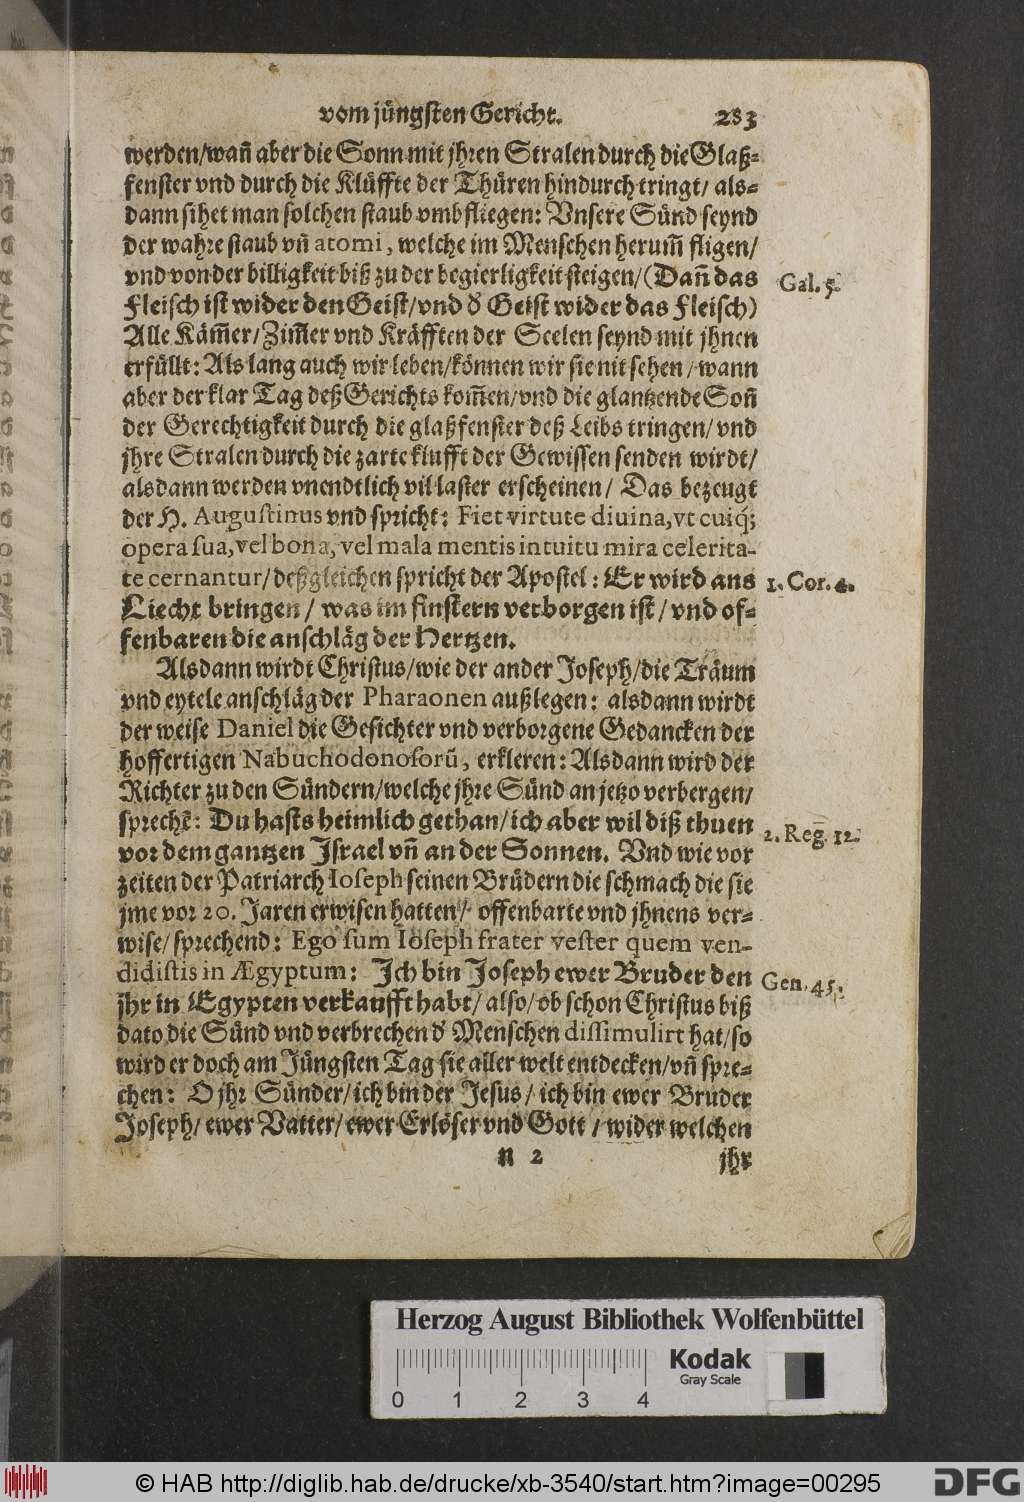 vom jüngsten Gericht. 283
werden/wañ aber die Sonn mit jhren Stralen durch die Glaß-
fenster vnd durch die Klüffte der Thüren hindurch tringt/ als-
dann sihet man solchen staub vmbfliegen: Vnsere Sünd seynd
der wahre staub vñ atomi, welche im Menschen herum̃ fligen/
vnd von der billigkeit biß zu der begierligkeit steigen/(Dañ das
Gal. 5.
Fleisch ist wider den Geist/vnd d' Geist wider das Fleisch)
Alle Käm̃er/Zim̃er vnd Kräfften der Seelen seynd mit jhnen
erfüllt: Als lang auch wir leben/können wir sie nit sehen/wann
aber der klar Tag deß Gerichts kom̃en/vnd die glantzende Soñ
der Gerechtigkeit durch die glaßfenster deß Leibs tringen/vnd
jhre Stralen durch die zarte klufft der Gewissen senden wirdt/
alsdann werden vnendtlich vil laster erscheinen/ Das bezeugt
der H. Augustinus vnd spricht: Fiet virtute diuina, vt cuiq́;
opera sua, vel bona, vel mala mentis intuitu mira celerita-
te cernantur/deßgleichen spricht der Apostel: Er wird ans
1. Cor. 4.
Liecht bringen/ was im finstern verborgen ist/ vnd of-
fenbaren die anschläg der Hertzen.
Alsdann wirdt Christus/wie der ander Joseph/die Träum
vnd eytele anschläg der Pharaonen außlegen: alsdann wirdt
der weise Daniel die Gesichter vnd verborgene Gedancken der
hoffertigen Nabuchodonosorũ, erkleren: Alsdann wird der
Richter zu den Sündern/welche jhre Sünd an jetzo verbergen/
sprechẽ: Du hasts heimlich gethan/ich aber wil diß thuen
2. Reg. 12.
vor dem gantzen Israel vñ an der Sonnen. Vnd wie vor
zeiten der Patriarch Ioseph seinen Brüdern die schmach die sie
jme vor 20. Jaren erwisen hatten/ offenbarte vnd jhnens ver-
wise/ sprechend: Ego sum Ioseph frater vester quem ven-
didistis in Ægyptum: Ich bin Joseph ewer Bruder den
Gen. 45.
jhr in Egypten verkaufft habt/ also/ ob schon Christus biß
dato die Sünd vnd verbrechen d' Menschen dissimulirt hat/so
wird er doch am Jüngsten Tag sie aller welt entdecken/vñ spre-
chen: O jhr Sünder/ich bin der Jesus/ ich bin ewer Bruder
Joseph/ ewer Vatter/ewer Erlöser vnd Gott/ wider welchen
n 2 jhr
Herzog August Bibliothek Wolfenbüttel
Kodak
Gray Scale
0 1 2 3 4
© HAB http://diglib.hab.de/drucke/xb-3540/start.htm?image=00295
DFG